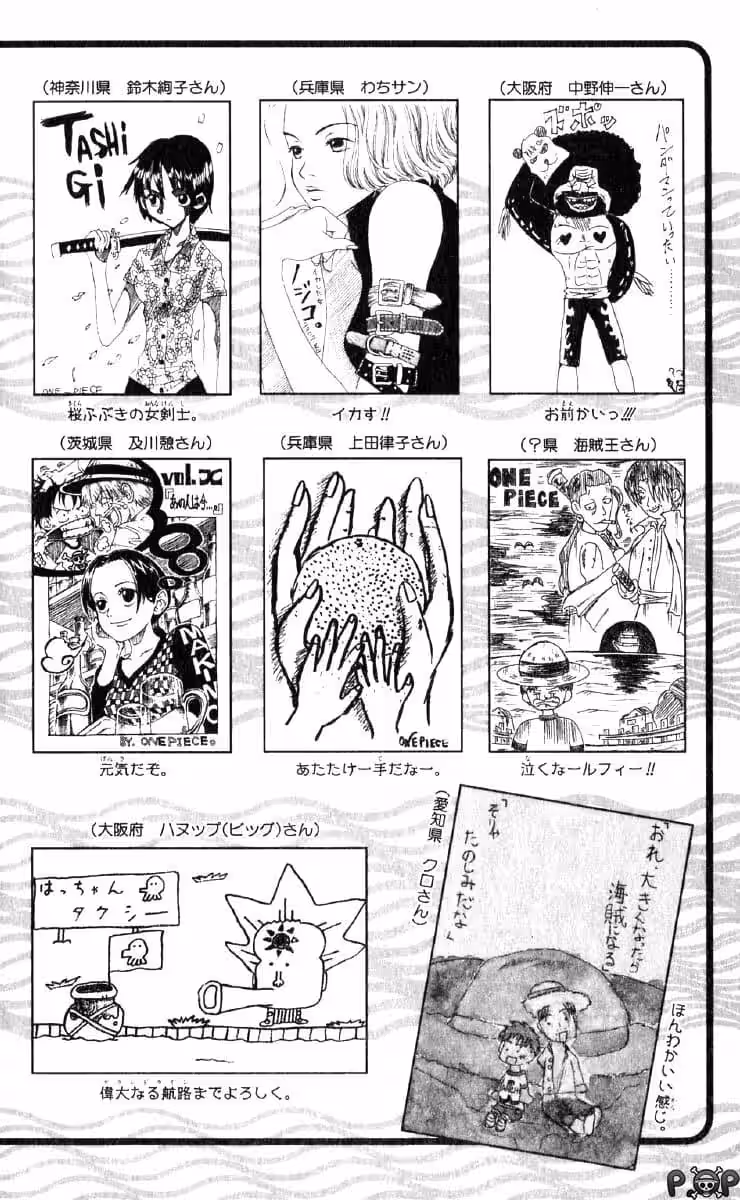 (神奈川県 鈴木絢子さん)
TASHiGi
ONE_PiECE
桜ふぶきの女剣士。
(兵庫県 わちサン)
ノジコ。
イカす!!
(大阪府 中野伸一さん)
ズボボッ
パンダーマンっていったい…………
お前かいっ!!!
(茨城県 及川憩さん)
vol.X
『あの人は今…』
MAKINO
BY. ONEPIECE。
元気だぞ。
(兵庫県 上田律子さん)
ONEPIECE
あたたけー手だなー。
(?県 海賊王さん)
ONE
PiECE
泣くなールフィー!!
(大阪府 ハヌップ(ビッグ)さん)
はっちゃん
タクシー
偉大なる航路までよろしく。
グランドライン
(愛知県 クロさん)
「おれ、大きくなったら
海賊になる」
「そりゃ
たのしみだな」
ほんわかいい感じ。
POP